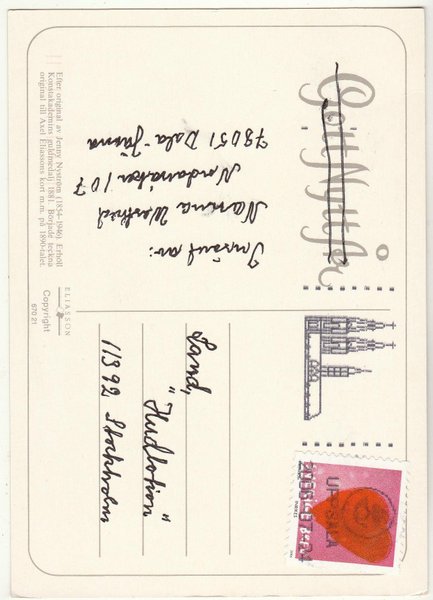 Gott Nytt År
Insänt av:
Nanna
107
78051 Dala-Järna
Efter original av Jenny Nyström (1854-1946). Erhöll
Konstakademins guldmedalj 1881. Började teckna
original till Axel Eliassons kort m.m. på 1890-talet.
ELIASSON
Copyright
670 21
Land,
"Hudlotion"
11392 Stockholm
UPPSALA